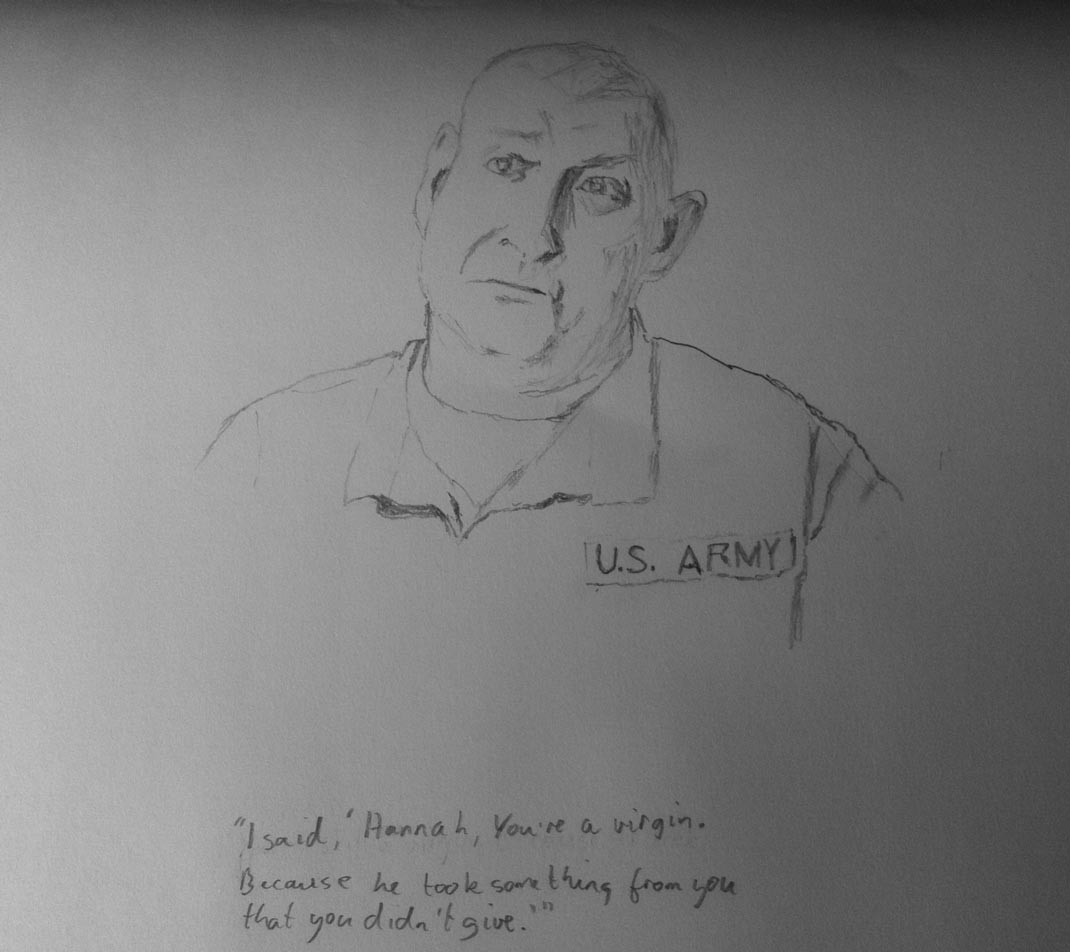 U.S. ARMY
"I said, 'Hannah, You're a virgin.
Because he took something from you
that you didn't give.'"